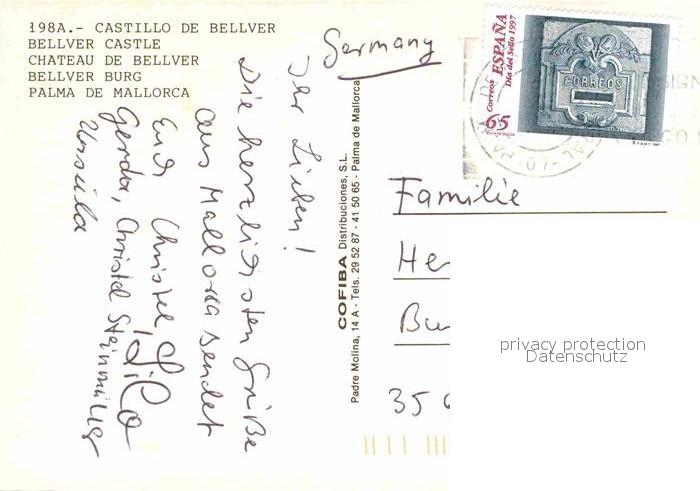 198A.- CASTILLO DE BELLVER
BELLVER CASTLE
CHATEAU DE BELLVER
BELLVER BURG
PALMA DE MALLORCA
Ihr Lieben!
Die herzlichsten Grüße
aus Mallorca sendet
Euch Christel,
Gerda, Christel Steinmüller
Ursula
COFIBA Distribuciones, S.L.
Padre Molina, 14 A - Tels. 29 52 87 - 41 50 65 - Palma de Mallorca
Germany
Correos ESPAÑA
Día del Sello 1997
65
CORREOS
Familie
He
Bu
35
privacy protection
Datenschutz